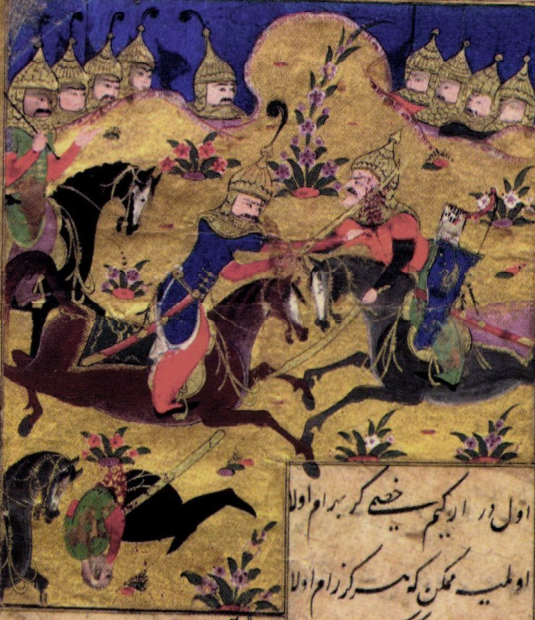 اول در ار کیم خصمی کر بهرام اولا
اولمیه ممکن که هرکز رام اولا